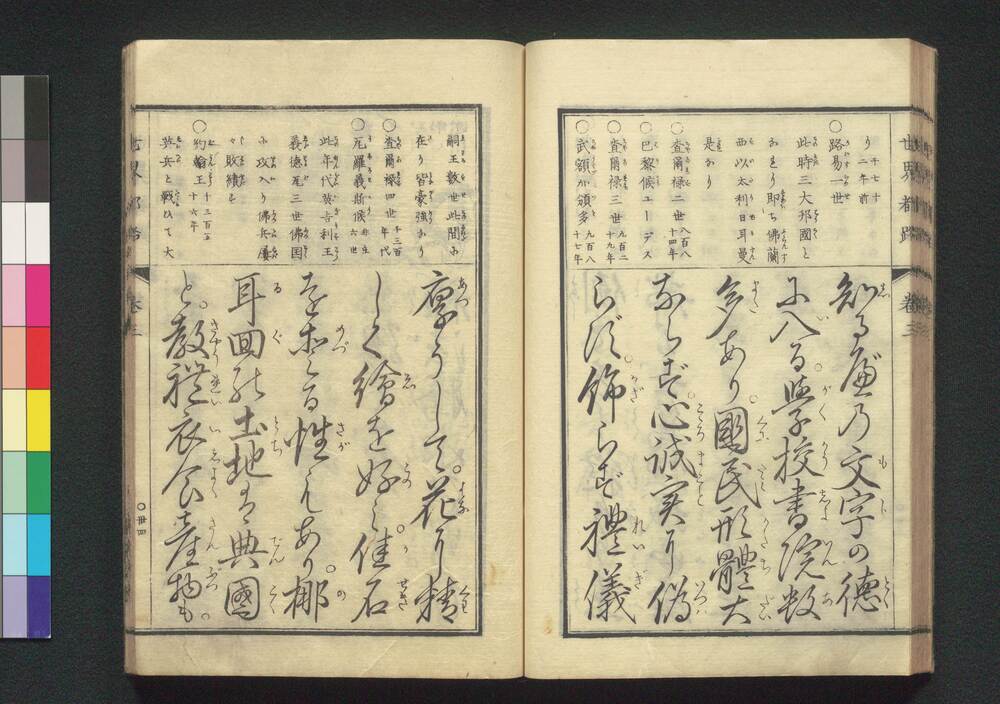 り 千七十二年前
○路易一世
此時三大邦國と
なり即ち佛蘭
西以太利日耳曼
是なり
○査爾禄二世 八百八十四年
○巴黎候ユーデス
○査爾禄三世 九百二十九年
○武額加頗多 九百八十七年
知る。廼乃文字の徳
に入る。學校書院数
多あり。國民形體大
ならず。心誠実に偽
らず。飾らず禮儀
世界都路 巻三
嗣王数世此間に
在り皆豪強なり
○査爾禄四世 千三百年代
○厄羅義斯候
此年代英吉利王
義徳瓦三世佛国
に攻入り佛兵屢
々敗績す
○約翰王 千三百五十六年
英兵と戦ひて大
厚うして。花に精
しく繪を好み。佳石
を愛る性もあり。挪
耳回の土地は典國
と。教禮衣食産物も。
世界都路 巻三